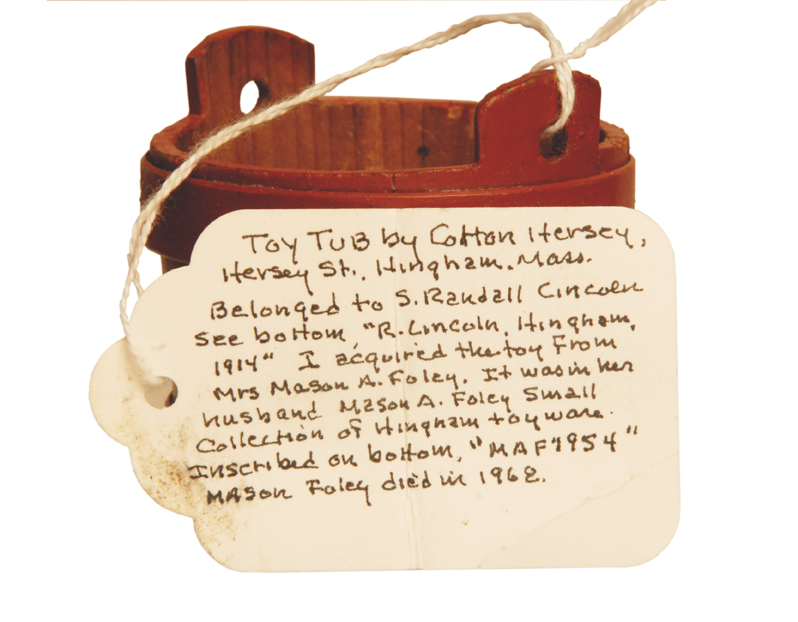 Toy Tub by Cotton Hersey,
Hersey St., Hingham. Mass.
Belonged to S. Randall Lincoln
See bottom, "R. Lincoln, Hingham,
1914" I acquired the toy From
Mrs Mason A. Foley. It was in her
husband Mason A. Foley Small
Collection of Hingham toyware.
Inscribed on bottom, "MAF 1954"
Mason Foley died in 1962.